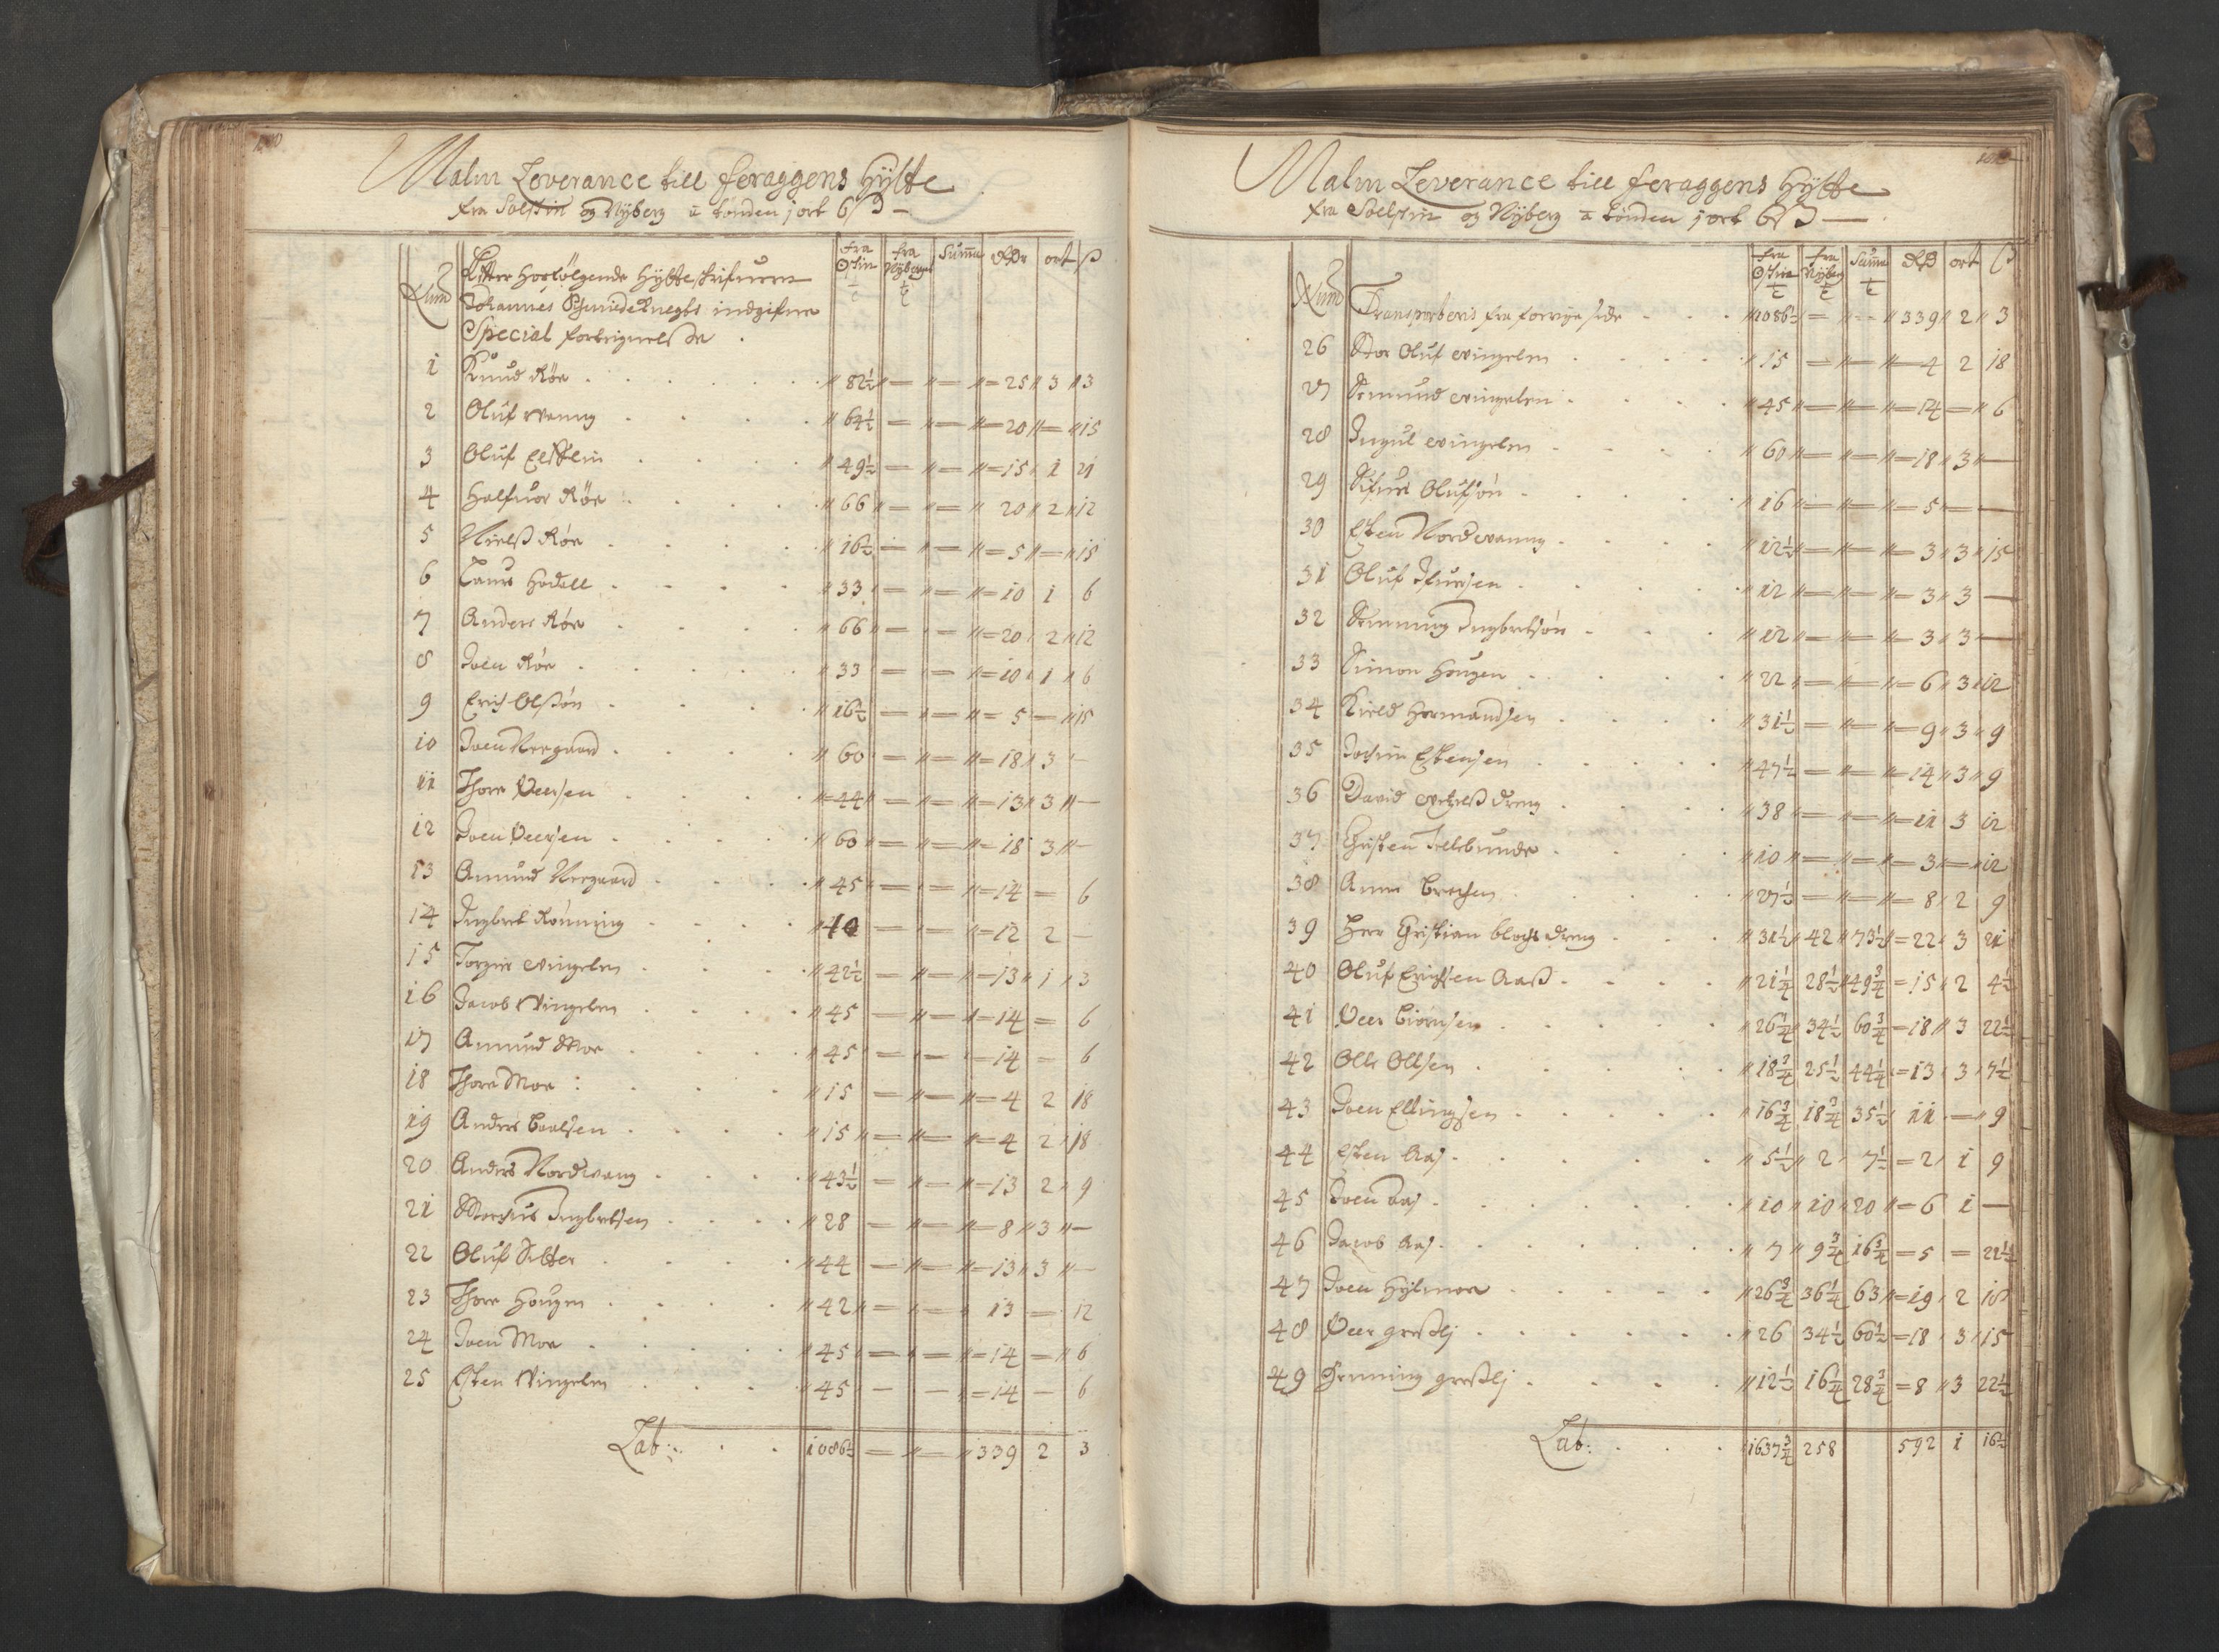 Malm Leverance till feraggens Hytte
fra Solskin og Nyberg a tönden j ort 6 ß —
Num
fra Skin t fra Nyberget t Suma Rdr ort ß
Effter Hosfölgende Hytteskrifueren
Johannes Schmideknegts indgifne
Special forteignelse
1 Knud Röe 82½ — — 25 3 3
2 Oluf Wanng 64½ — — 20 — 15
3 Oluf 49½ — — 15 1 21
4 Halfuor Röe 66 — — 20 2 12
5 Nielß Röe 16½ — — 5 — 15
6 Laurs Hodall 33 — — 10 1 6
7 Anders Röe 66 — — 20 2 12
8 Joen Röe 33 — — 10 1 6
9 Erich Olßön 16½ — — 5 — 15
10 Joen Neegaard 60 — — 18 3 —
11 Thore Peersen 44 — — 13 3 —
12 Joen Peersen 60 — — 18 3 —
13 Amund Neegaard 45 — — 14 — 6
14 Ingbret Rönning 40 — — 12 2 —
15 Torger Vingelen 42½ — — 13 1 3
16 Jacob Wingelen 45 — — 14 — 6
17 Amund Moe 45 — — 14 — 6
18 Thore Moe 15 — — 4 2 18
19 Anders Baalsen 15 — — 4 2 18
20 Anders Nordwang 43½ — — 13 2 9
21 Ingbretsen 28 — — 8 3 —
22 Oluf Sætter 44 — — 13 3 —
23 Thore Hougen 42 — — 13 — 12
24 Joen Moe 45 — — 14 — 6
25 Esten Wingelen 45 — — 14 — 6
Lat: 1086½ — — 339 2 3
Malm Leverance till feraggens Hytte
fra Soelskin og Nyberg a tönden j ort 6 ß —
Num
fra Skin t fra Nyberg t Suma t Rdr ort ß
Transporteris fra forrige side 1086½ — — 339 2 3
26 Stor Oluf Vingelen 15 — — 4 2 18
27 Semund Vingelen 45 — — 14 — 6
28 Ingul Vingelen 60 — — 18 3 —
29 Sifuer Olufsön 16 — — 5 — —
30 Esten Nordwanng 12½ — — 3 3 15
31 Oluf Ifuersen 12 — — 3 3 —
32 Ingbretsön 12 — — 3 3 —
33 Simon Hougen 22 — — 6 3 12
34 Kield Hermandsen 31½ — — 9 3 9
35 Jochim Estensen 47½ — — 14 3 9
36 David dreng 38 — — 11 3 12
37 Christen Tellebunde 10 — — 3 — 12
38 Anne 27½ — — 8 2 9
39 Herr Christian blochs dreng 31½ 42 73½ 22 3 21
40 Oluf Erichsen Aaß 21¼ 28½ 49¾ 15 2 4½
41 Peer Biörnsen 26¼ 34½ 60¾ 18 3 22½
42 Olle Ollsen 18¾ 25½ 44¼ 13 3 7½
43 Joen Ellingsen 16¾ 18¾ 35½ 11 — 9
44 Esten Aas 5½ 2 7½ 2 1 9
45 Joen Aas 10 10 20 6 1 —
46 Jacob Aas 7 9¾ 16¾ 5 — 22½
47 Joen Hylmoe 26¾ 36¼ 63 19 2 18
48 Peer Greslj 26 34½ 60½ 18 3 15
49 Henning greslj 12½ 16¼ 28¾ 8 3 22½
Lat: 1637¾ 258 592 1 16½